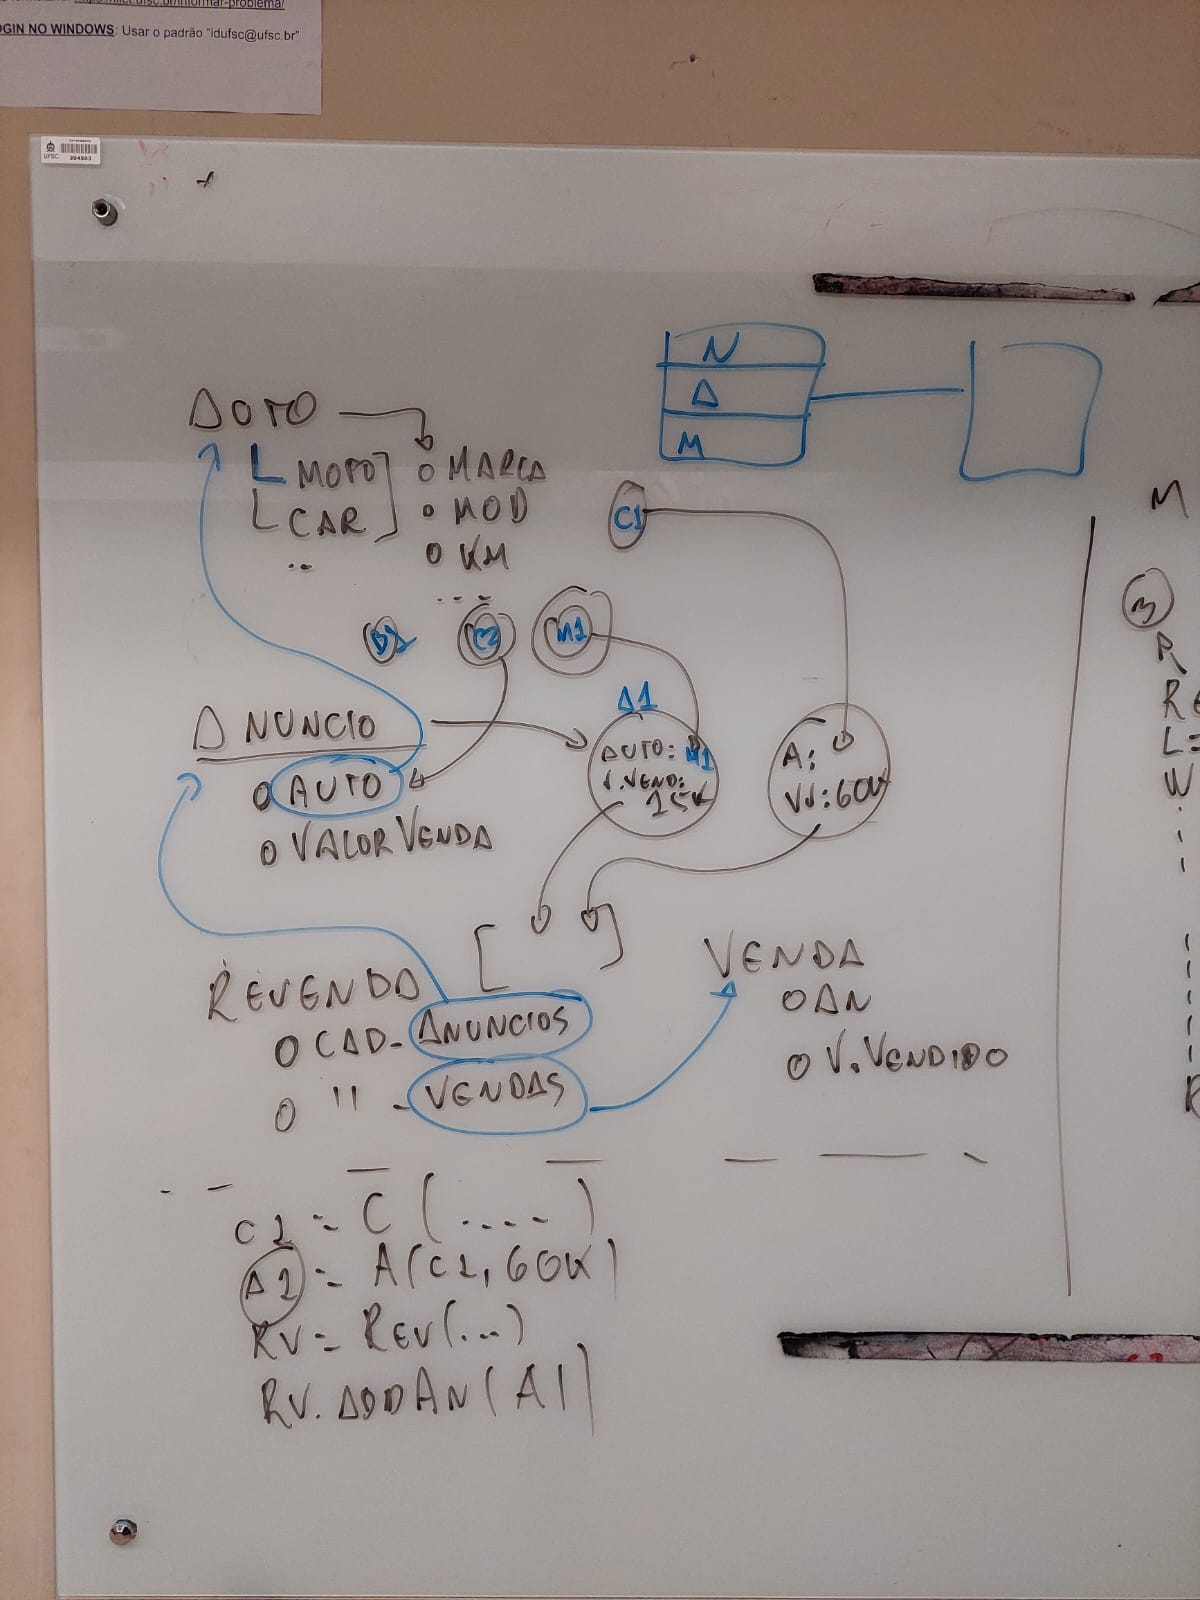 https://nfct.ufsc.br/informar-problema/
OGIN NO WINDOWS: Usar o padrão "idufsc@ufsc.br"
UFSC 204503
N
A
M
AUTO
MOTO
CAR
..
O MARCA
O MOD
O KM
...
C1
C2
M1
ANUNCIO
O AUTO
O VALOR VENDA
A1
AUTO: M1
V.VEND:
15K
A:
VV: 60K
[ ]
REVENDA
O CAD_ANUNCIOS
O " _VENDAS
VENDA
O AN
O V.VENDIDO
C1 = C(....)
A1 = A(C1, 60K)
RV = REV(...)
RV.ADDAN(A1)
M
3
R
RE
L=
W
R